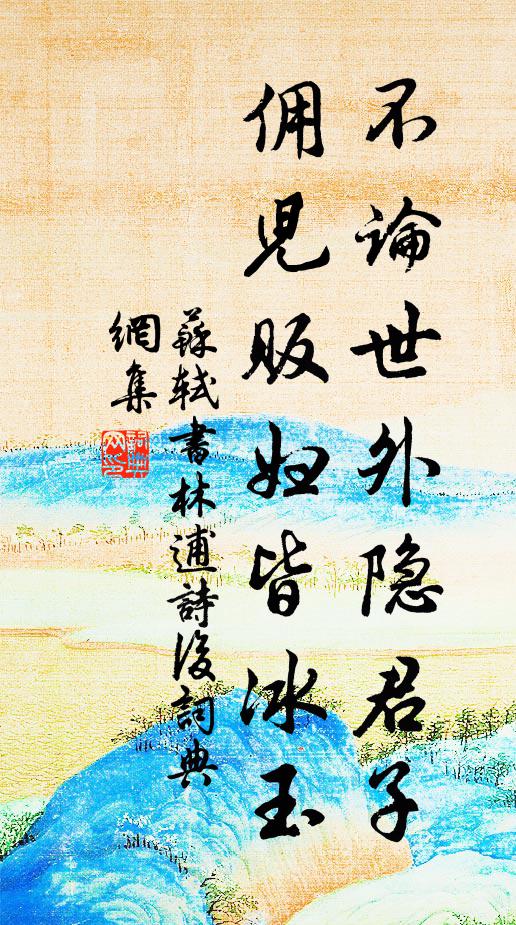 不論世外隐君子
佣兒販妇皆冰玉
蘇轼書林逋詩後詞典
網集